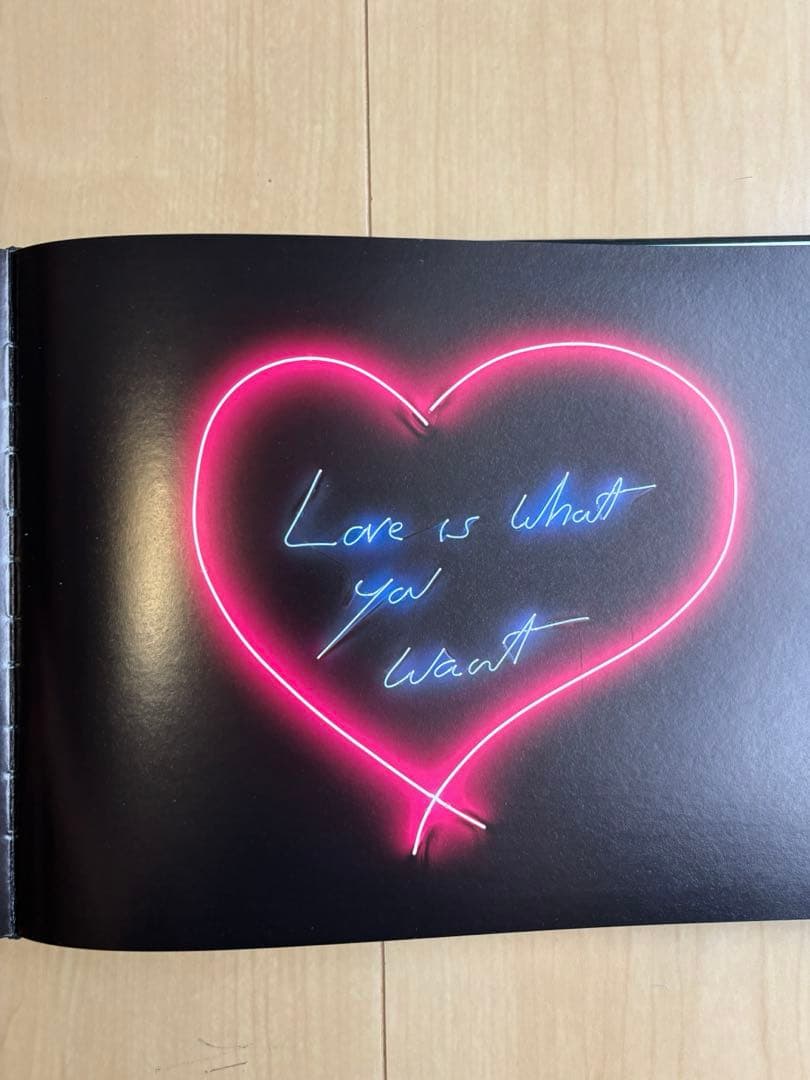 Love is what
you
want